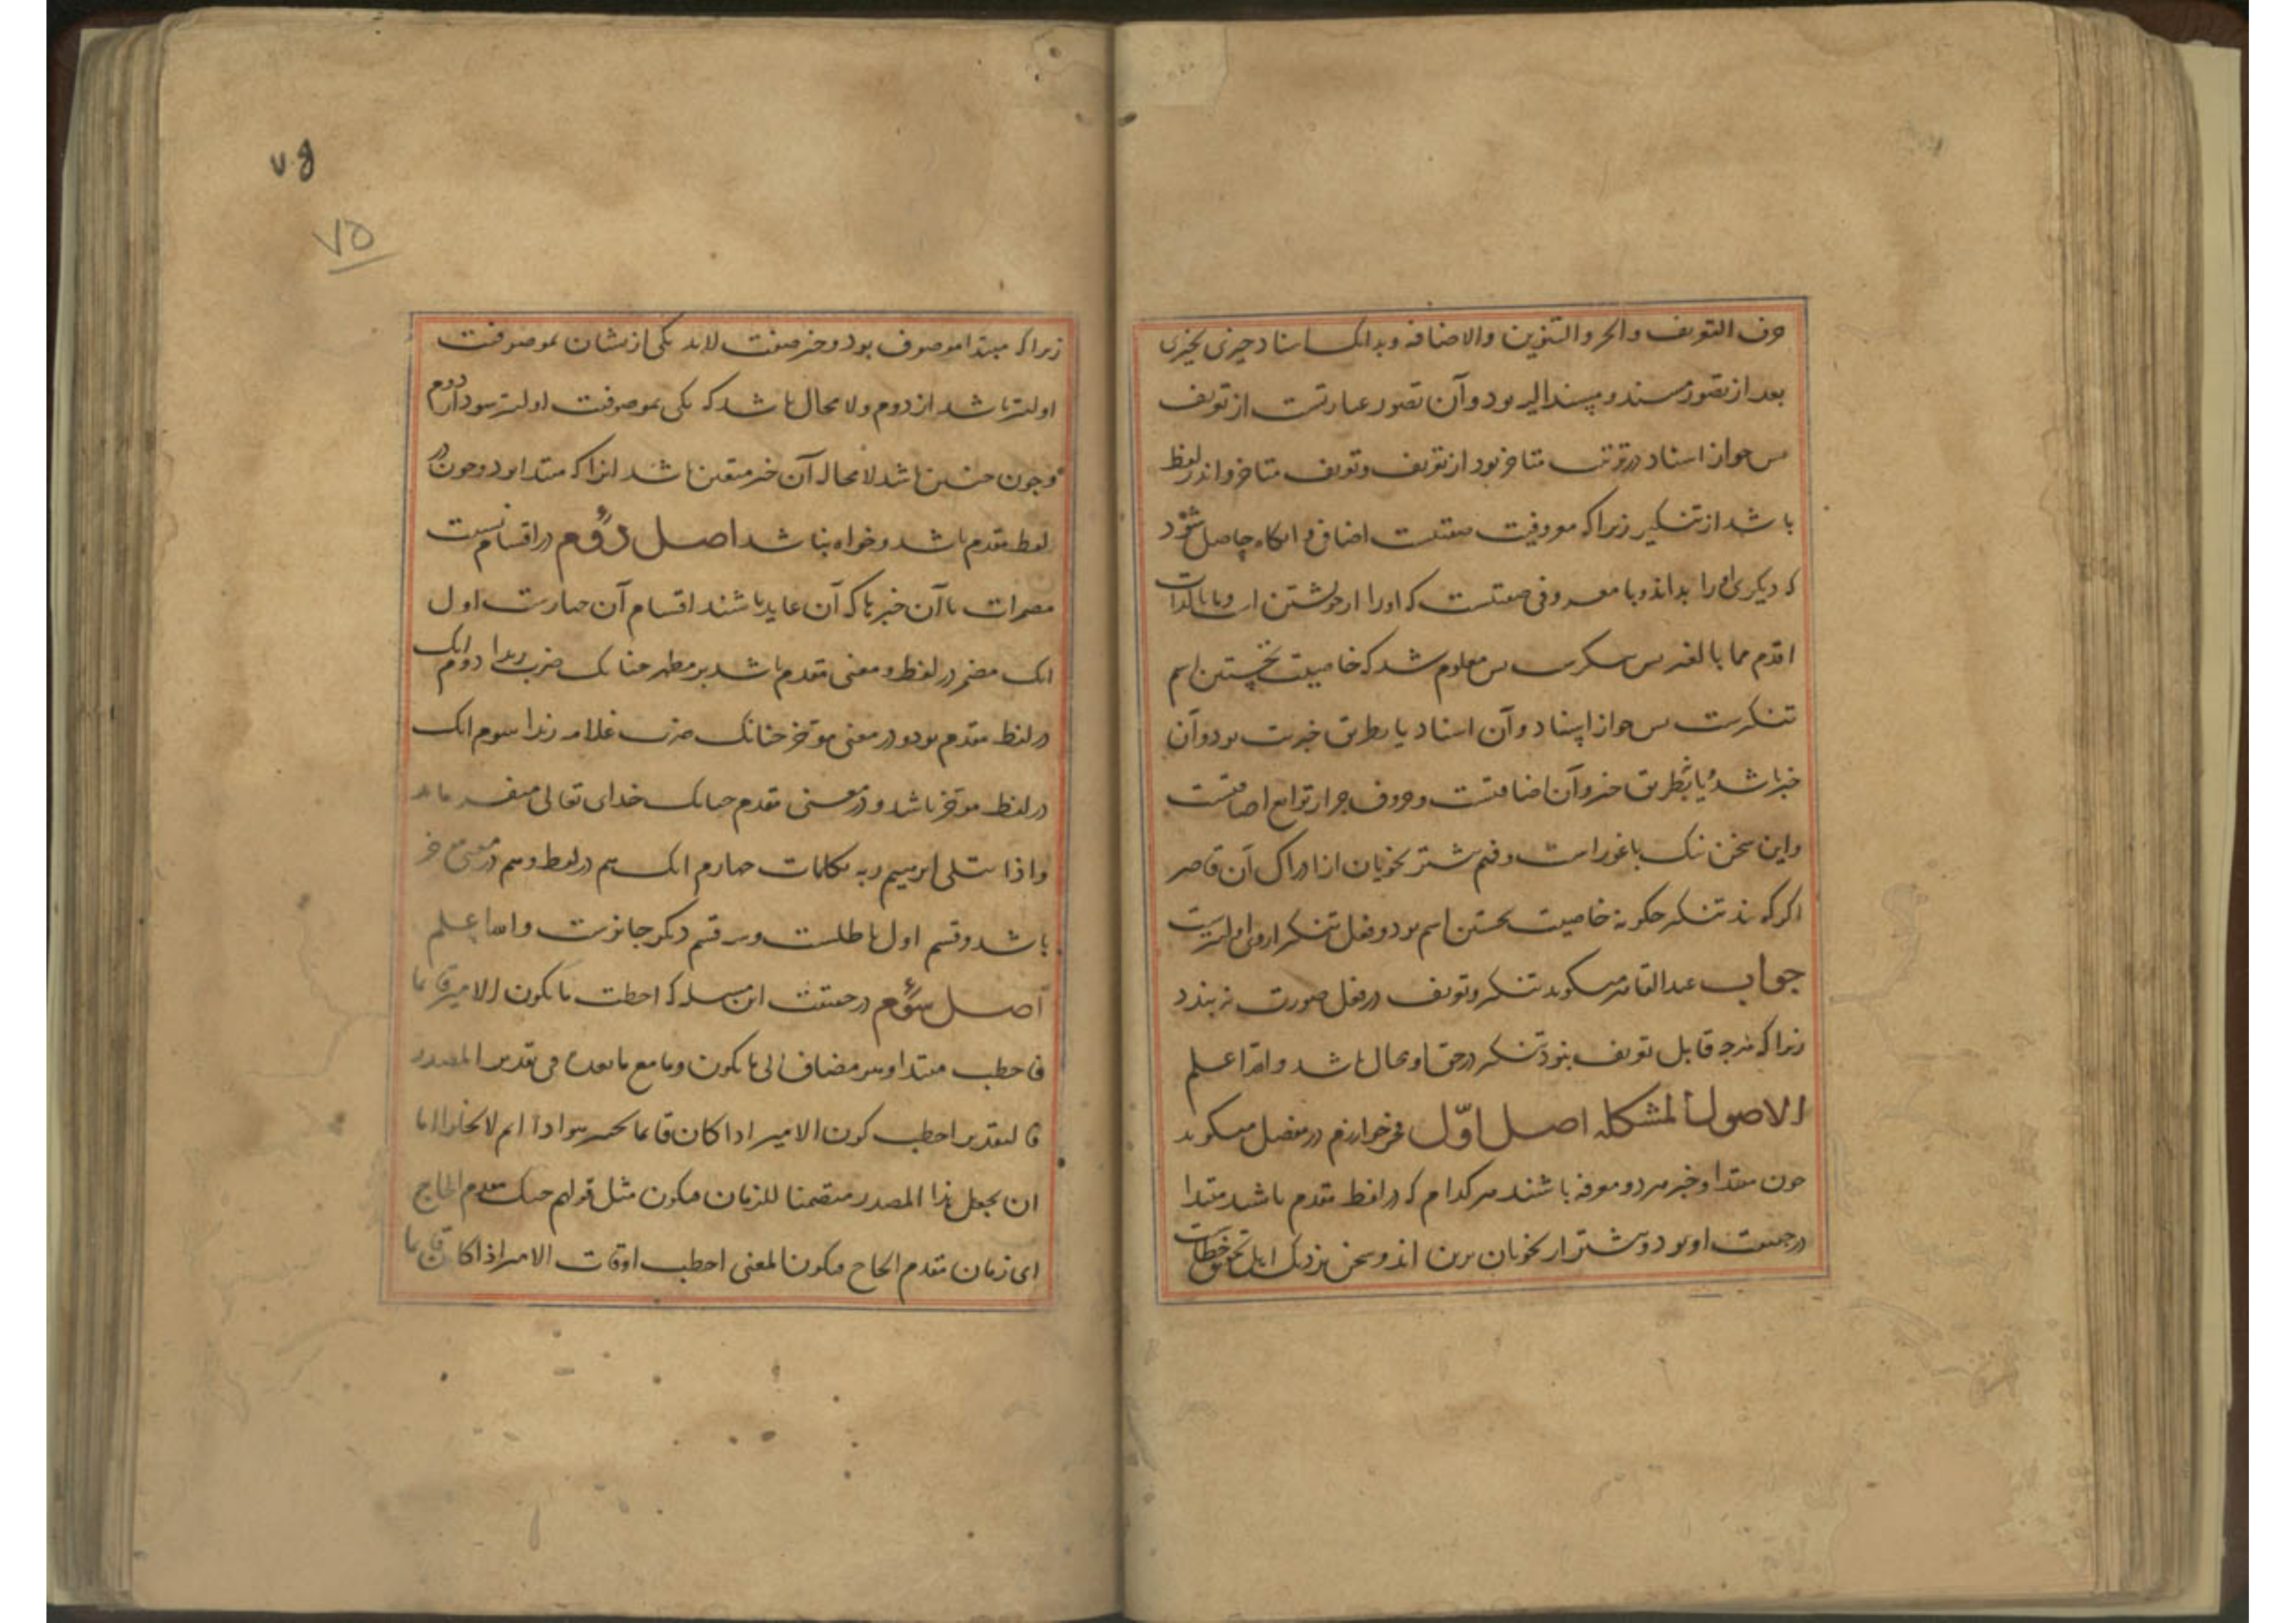 حرف التعریف والجر والتنوین والاضافه وبدانک اسناد چیزی بچیزی
بعد از تصور مسند و مسند الیه بود و آن تصور عبارتست از تعریف
بس جواز اسناد در رتبت متاخر بود از تعریف و تعریف متاخر و اندر لفظ
باشد از تنکیر زیرا که معروفیت صفتیست اضافی و انکاه حاصل شود
که دیکری او را بداند و نامعروفی صفتیست که او را از خویشتن است و ما بالذات
اقدم مما بالغیر بس معلوم شد که خاصیت نخستین اسم
تنکیرست بس جواز اسناد و آن اسناد یا بطریق خبریت بود و آن
خبر باشد یا نه بطریق خبر و آن اضافتست و حروف جر از توابع اضافتست
و این سخن نیک با غور است و فهم بیشتر نحویان از ادراک آن قاصر
اکر کویند تنکیر چکونه خاصیت نخستین اسم بود و فعل بتنکیر از وی اولیترست
جواب عبد القاهر میکوید تنکیر و تعریف در فعل صورت نه بندد
زیرا که هرچه قابل تعریف نبود تنکیر در حق او محال باشد والله اعلم
الاصول المشکله اصل اوّل فخر خوارزم در مفصل میکوید
چون مبتدا و خبر هر دو معرفه باشند هر کدام که در لفظ مقدم باشد مبتدا
در حقیقت او بود و بیشتر از نحویان برین اند و سخن نزدیک اهل تحقیق خطاست
زیرا که مبتدا موصوف بود و خبر صفت لابد یکی از نشان بموصوفیت
اولیتر باشد از دوم ولا محال باشد که یکی بموصوفیت اولیتر بود از دوم
و چون چنین باشد لا محاله آن خبر متعین باشد از انکه مبتدا بود و چون در
لفظ مقدم باشد و خواه نباشد اصل دوم در اقسام نسبت
مضمرات با آن خبرها که آن عاید باشند اقسام آن چهارست اول
انک مضمر در لفظ و معنی مقدم باشد بر مظهر چنانک ضرب زیدا دوم انک
در لفظ مقدم بود و در معنی موخر چنانک ضرب غلامه زیدا سوم انک
در لفظ موخر باشد و در معنی مقدم چنانک خدای تعالی میفرماید
واذا ابتلی ابرهیم ربه بکلمات چهارم انک هم در لفظ و هم در معنی موخر
باشد و قسم اول باطلست و سه قسم دیکر جائزست والله اعلم
اصل سوم در حقیقت این مسله که اخطب ما یکون الامیر قائما
فاخطب مبتدا و هو مضاف الی ما یکون وما مع ما بعدها فی تقدیر المصدر
فالتقدیر اخطب کون الامیر اذا کان قائما
ان یجعل هذا المصدر متضمنا للزمان فیکون مثل قولهم جئتک مقدم الحاج
ای زمان مقدم الحاج فیکون المعنی اخطب اوقات الامیر اذا کان قائما
۷۵